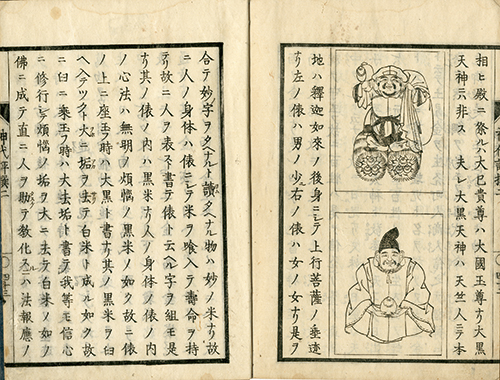 相ヒ殿ニ祭ル大已貴尊ハ大國玉尊ナリ大黒
天神ニ非ス夫レ大黒天神ハ天竺人ニテ本
地ハ釋迦如來ノ後身ニシテ上行菩薩ノ垂迹
ナリ左ノ俵ハ男ノ少右ノ俵ハ女ノ女ナリ是ヲ
合テ妙字ヲタヘナルト讀タヘナル物ハ妙ノ米ナリ故
ニ人ノ身体ハ俵ニシテ米ヲ喰ヘテ壽命ヲ持
テリ故ニ人ヲ表スト書テ俵ト云ヘル字ヲ組モ是
ナリ其ノ俵ノ内ハ黒米ナリ人ノ身体ノ俵ノ内
ノ心法ハ無明ノ煩惱ノ黒米ノ如ク故ニ俵
ノ上ニ座シ玉フ時ハ大黒ト書ナリ其ノ黒米ヲ臼
ヘテツクト大ニ垢ヲ去テ白米ト成ル如ク故
ニ臼ニ乗玉フ時ハ大去垢ト書テ我等モ信心
ニ修行シテ煩惱ノ垢ヲ大ニ去テ白米ノ如ノ
佛ニ成テ直ニ人ヲ助テ教化スルハ法報應ノ